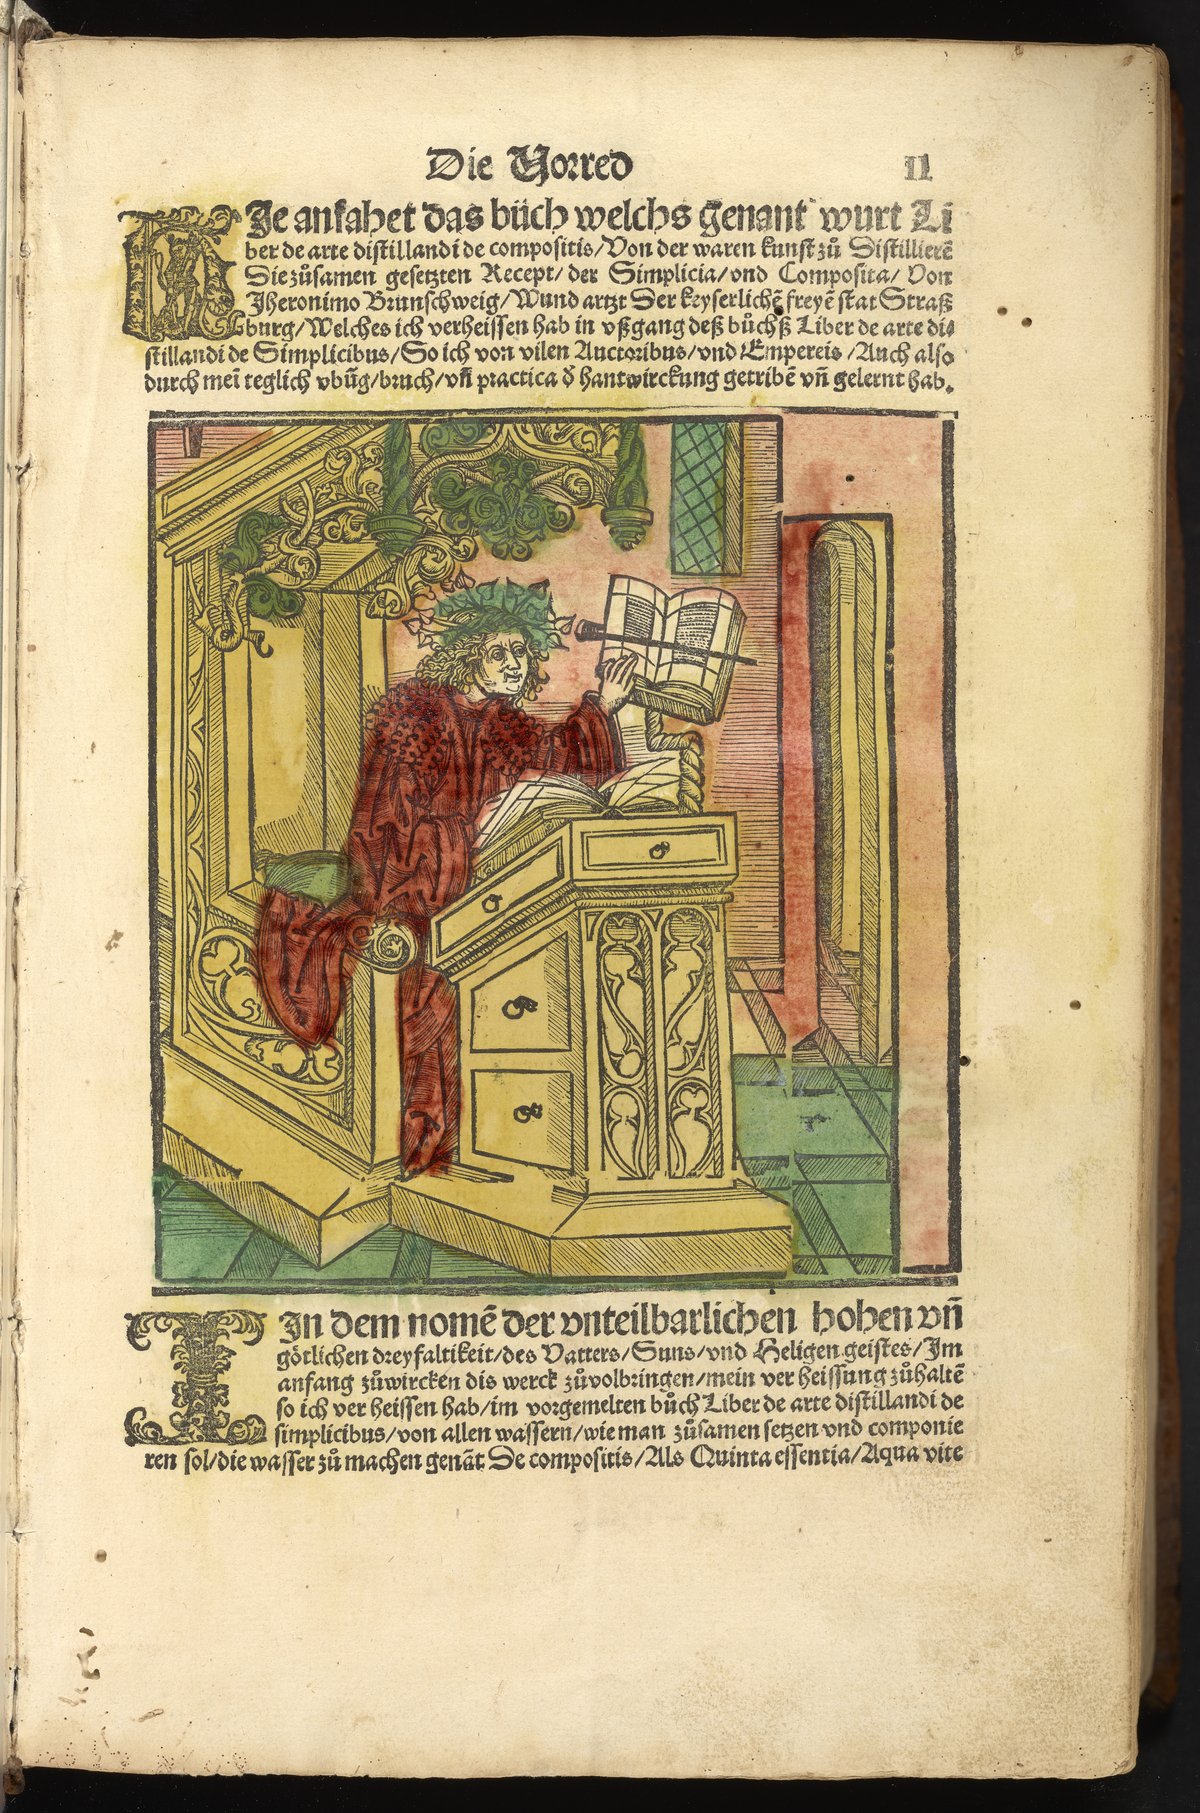 Die Vorred
II
HIe anfahet das bůch welchs genant wurt Li
ber de arte distillandi de compositis/Von der waren kunst zů Distillierē
Die zůsamen gesetzten Recept/der Simplicia/vnd Composita/Von
Jheronimo Brunschweig/Wund artzt Der keyserlichē freyē stat Straß
burg/Welches ich verheissen hab in vßgang deß bůchß Liber de arte di⸗
stillandi de Simplicibus/So ich von vilen Auctoribus/vnd Empereis/Auch also
durch meī teglich vbūg/bruch/vñ practica d̕ hantwirckung getribē vñ gelernt hab.
IIn dem nomē der vnteilbarlichen hohen vñ
götlichen dreyfaltikeit/des Vatters/Suns/vnd Heligen geistes/Im
anfang zůwircken dis werck zůvolbringen/mein ver heissung zůhaltē
so ich ver heissen hab/im vorgemelten bůch Liber de arte distillandi de
simplicibus/von allen wassern/wie man zůsamen setzen vnd componie
ren sol/die wasser zů machen genāt De compositis/Als Quinta essentia/Aqua vite